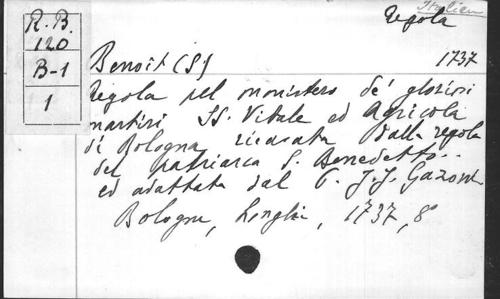 Italien
regola
R. B.
120
B-1
1
Benoit (S)
1737
Regola del monistero de' gloriosi
martiri SS. Vitale ed Agricola
di Bologna ricavata dalla regola
del patriarca S. Benedetto..
ed adattata dal C. J. J. Gazoni
Bologna, Longhi, 1737, 8°